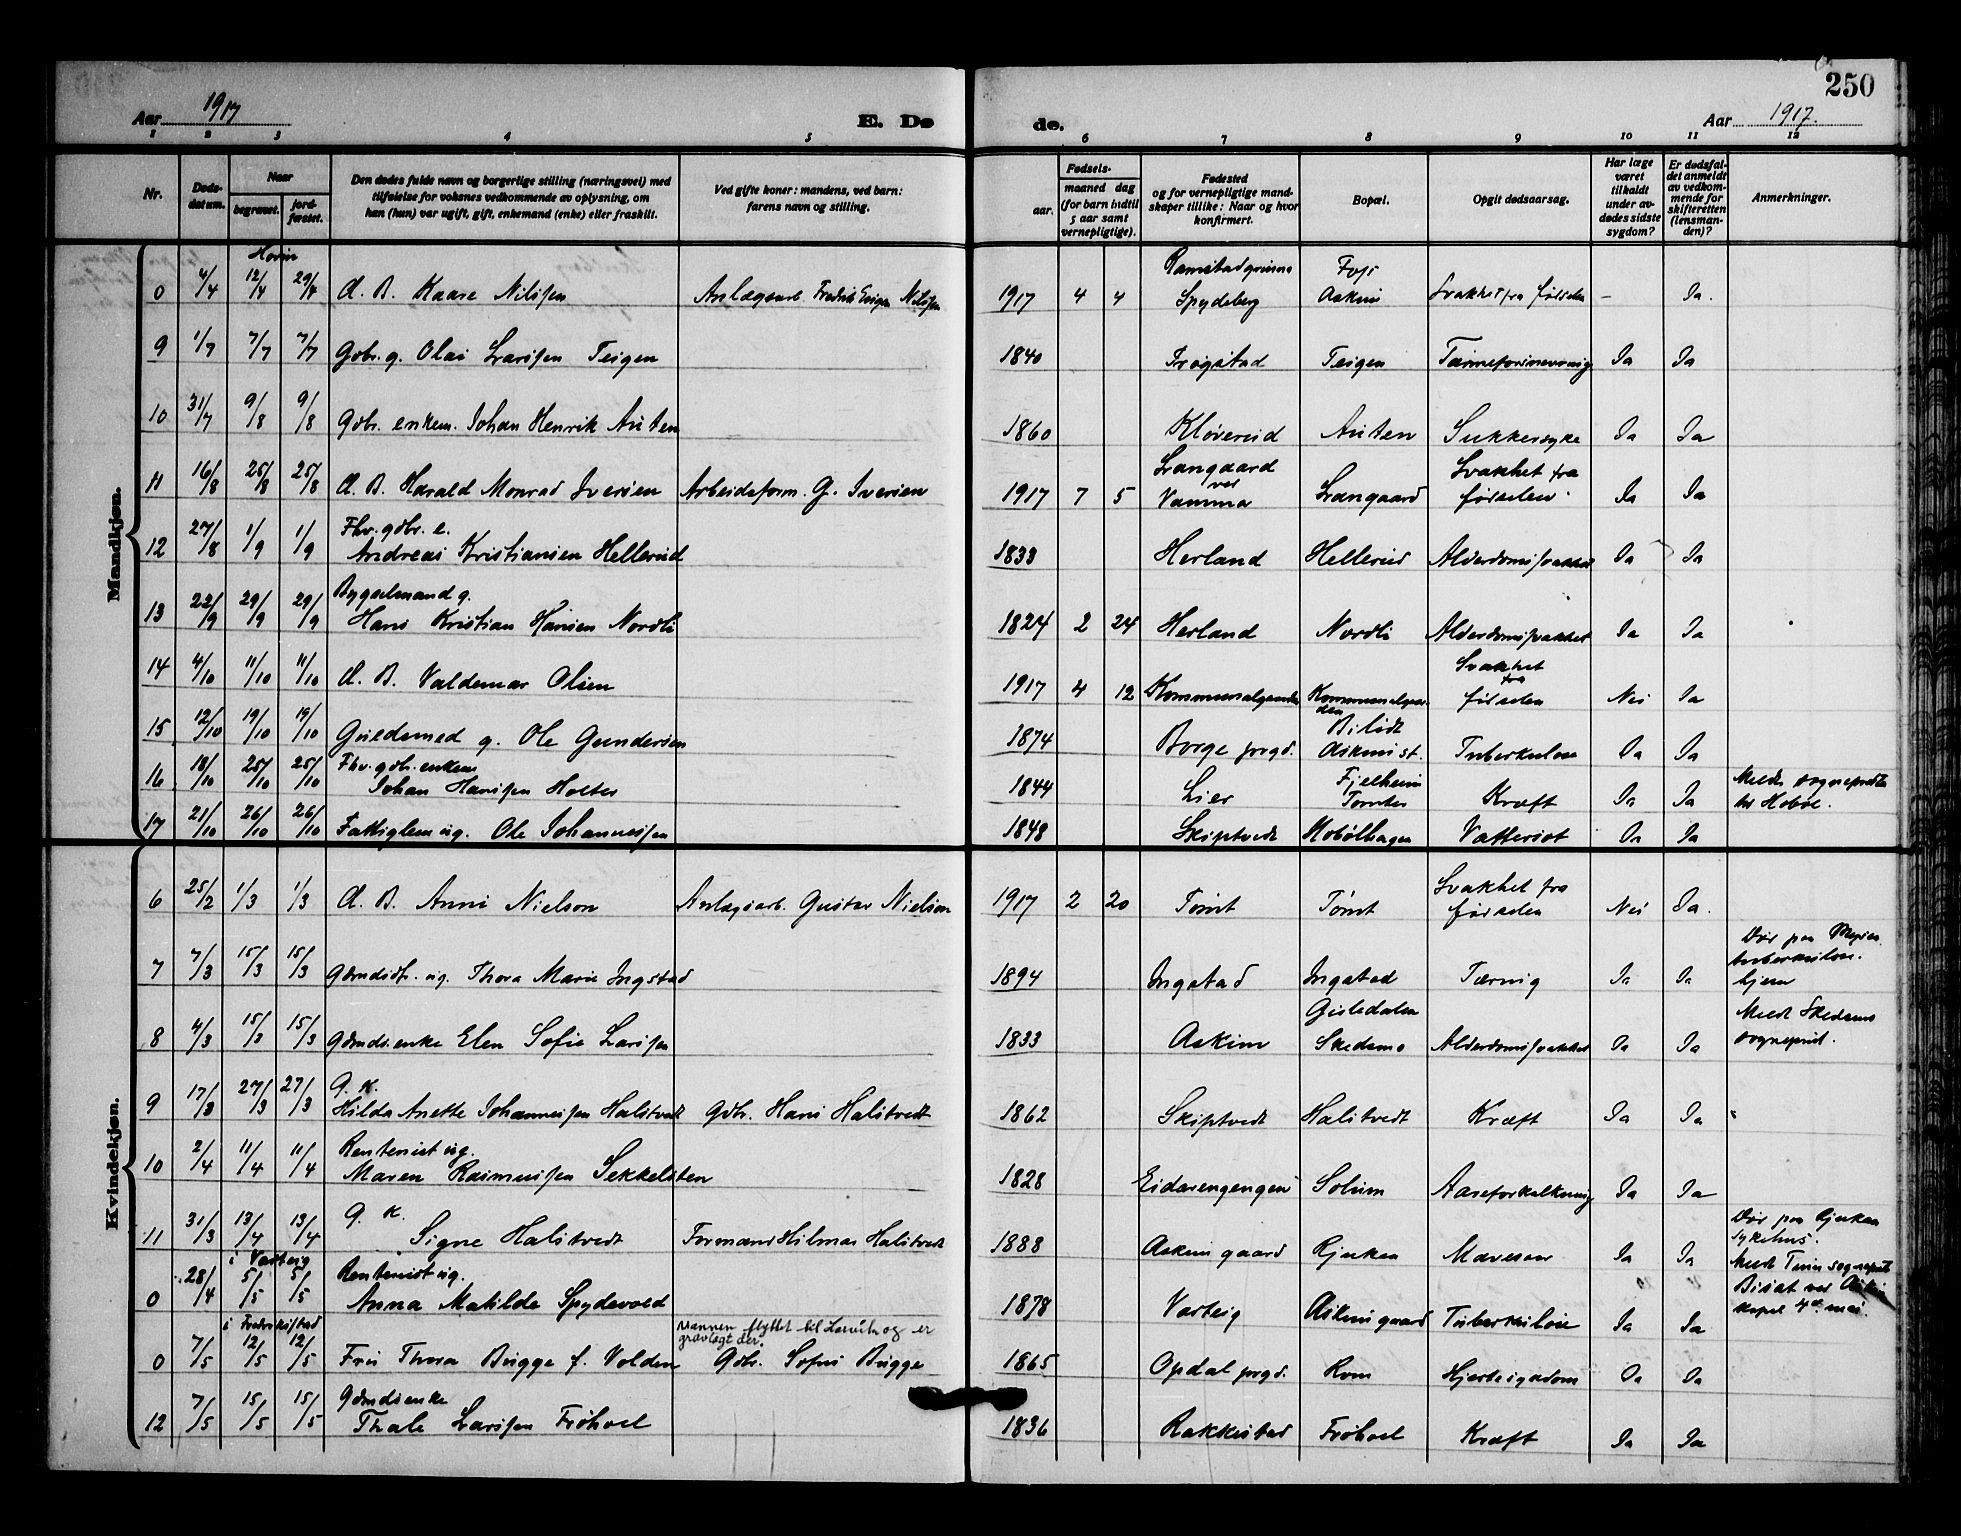 250
Aar 1917 E. Dø
de. Aar 1917.
1 2 3 4 5 6 7 8 9 10 11 12
Nr.
Døds-
datum.
Naar
begravet.
jord-
fæstet.
Den dødes fulde navn og borgerlige stilling (næringsvei) med
tilføielse for voksnes vedkommende av oplysning, om
han (hun) var ugift, gift, enkemand (enke) eller fraskilt.
Ved gifte koner: mandens, ved barn:
farens navn og stilling.
Fødsels-
aar.
maaned dag
(for barn indtil
5 aar samt
vernepligtige).
Fødested
og for vernepligtige mand-
skaper tillike: Naar og hvor
konfirmert.
Bopæl.
Opgit dødsaarsag.
Har læge
været
tilkaldt
under av-
dødes sidste
sygdom?
Er dødsfal-
det anmeldt
av vedkom-
mende for
skifteretten
(lensman-
den)?
Anmerkninger.
Mandkjøn.
Hovin
0 4/4 12/4 29/4 d. B. Kaare Nilssen Anlægsarb. Fredrik Nilssen 1917 4 4 Spydeberg Fossi Askim Svakhet fra fødselen — Ja.
9 1/7 7/7 7/7 Gdbr. g. Olai Larssen Teigen 1840 Trøgstad Teigen Ja Ja
10 31/7 9/8 9/8 Gdbr. enkem. Johan Henrik Auten 1860 Kløvereid Auten Sukkersyke Ja Ja
11 16/8 25/8 25/8 d. B. Harald Monrad Iversen Arbeidsform. G. Iversen 1917 7 5 Langaard ved Vamma Langaard Svakhet fra fødselen. Ja Ja
12 27/8 1/9 1/9 Fhv. gdbr. e.
Andreas Kristiansen Hellerud 1833 Herland Hellerud Alderdomssvakhet Ja Ja
13 22/9 29/9 29/9 Bygselmand g.
Hans Kristian Hansen Nordli 1824 2 24 Herland Nordli Alderdomssvakhet Ja Ja
14 4/10 11/10 11/10 d. B. Valdemar Olsen 1917 4 12 Kommunelgaarden Kommunelgaarden Svakhet fra fødselen Nei Ja
15 12/10 19/10 19/10 Guldsmed g. Ole Gundersen 1874 Borge prgd. Bilidt Askim st. Tuberkulose Ja Ja
16 18/10 25/10 25/10 Fhv. gdbr. enkem.
Johan Hanssen Holter 1844 Lier Fjelheim Tomter Kræft Ja Ja Meldt sogneprsten for Hobøl.
17 21/10 26/10 26/10 Fattiglem ug. Ole Johannessen 1848 Skiptvedt Hobølhagen Vattersot Ja Ja
Kvindekjøn.
6 25/2 1/3 1/3 d. B. Anni Nielson Anlægsarb. Gustav Nielson 1917 2 20 Tømt Tømt Svakhet fra fødselen Nei Ja.
7 7/3 15/3 15/3 Gdmdsdtr. ug. Thora Marie Ingstad 1894 Ingstad Ingstad Tæring Ja Ja Død paa Mysen tuberkulosehjem
8 4/3 15/3 15/3 Gdmdsenke Elen Sofie Larssen 1833 Askim Gisledalen Skedsmo Alderdomssvakhet Ja Ja Meldt Skedsmo sogneprst.
9 17/3 27/3 27/3 G. k.
Hilda Anette Johannessen Halstvedt Gdbr. Hans Halstvedt 1862 Skiptvedt Halstvedt Kræft Ja Ja
10 2/4 11/4 11/4 Rentenist ug.
Maren Rasmussen Sekkelsten 1828 Eidarengengen Solum Aareforkalkning Ja Ja
11 31/3 13/4 13/4 G. k.
Signe Halstvedt Formand Hilmar Halstvedt 1888 Askim gaard Rjukan Mavesaar Ja Ja Død paa Rjukan sykehus. Meldt Tinn sogneprst
i Varteig
0 28/4 5/5 5/5 Rentenist ug.
Anna Matilde Spydevold 1878 Varteig Askimgaard Tuberkulose Ja Ja Bisat ved Askim kapel 4de mai.
i Fredrikstad
0 7/5 12/5 12/5 Fru Thora Bugge f. Volden Mannen flyttet til Larvik og er gravlagt der.
Gdbr. Sofus Bugge 1865 Opdal prgd. Rom Hjertesygdom Ja Ja
12 7/5 15/5 15/5 Gdmdsenke
Thale Larssen Frøhoel 1836 Rakkestad Frøhoel Kræft Ja Ja